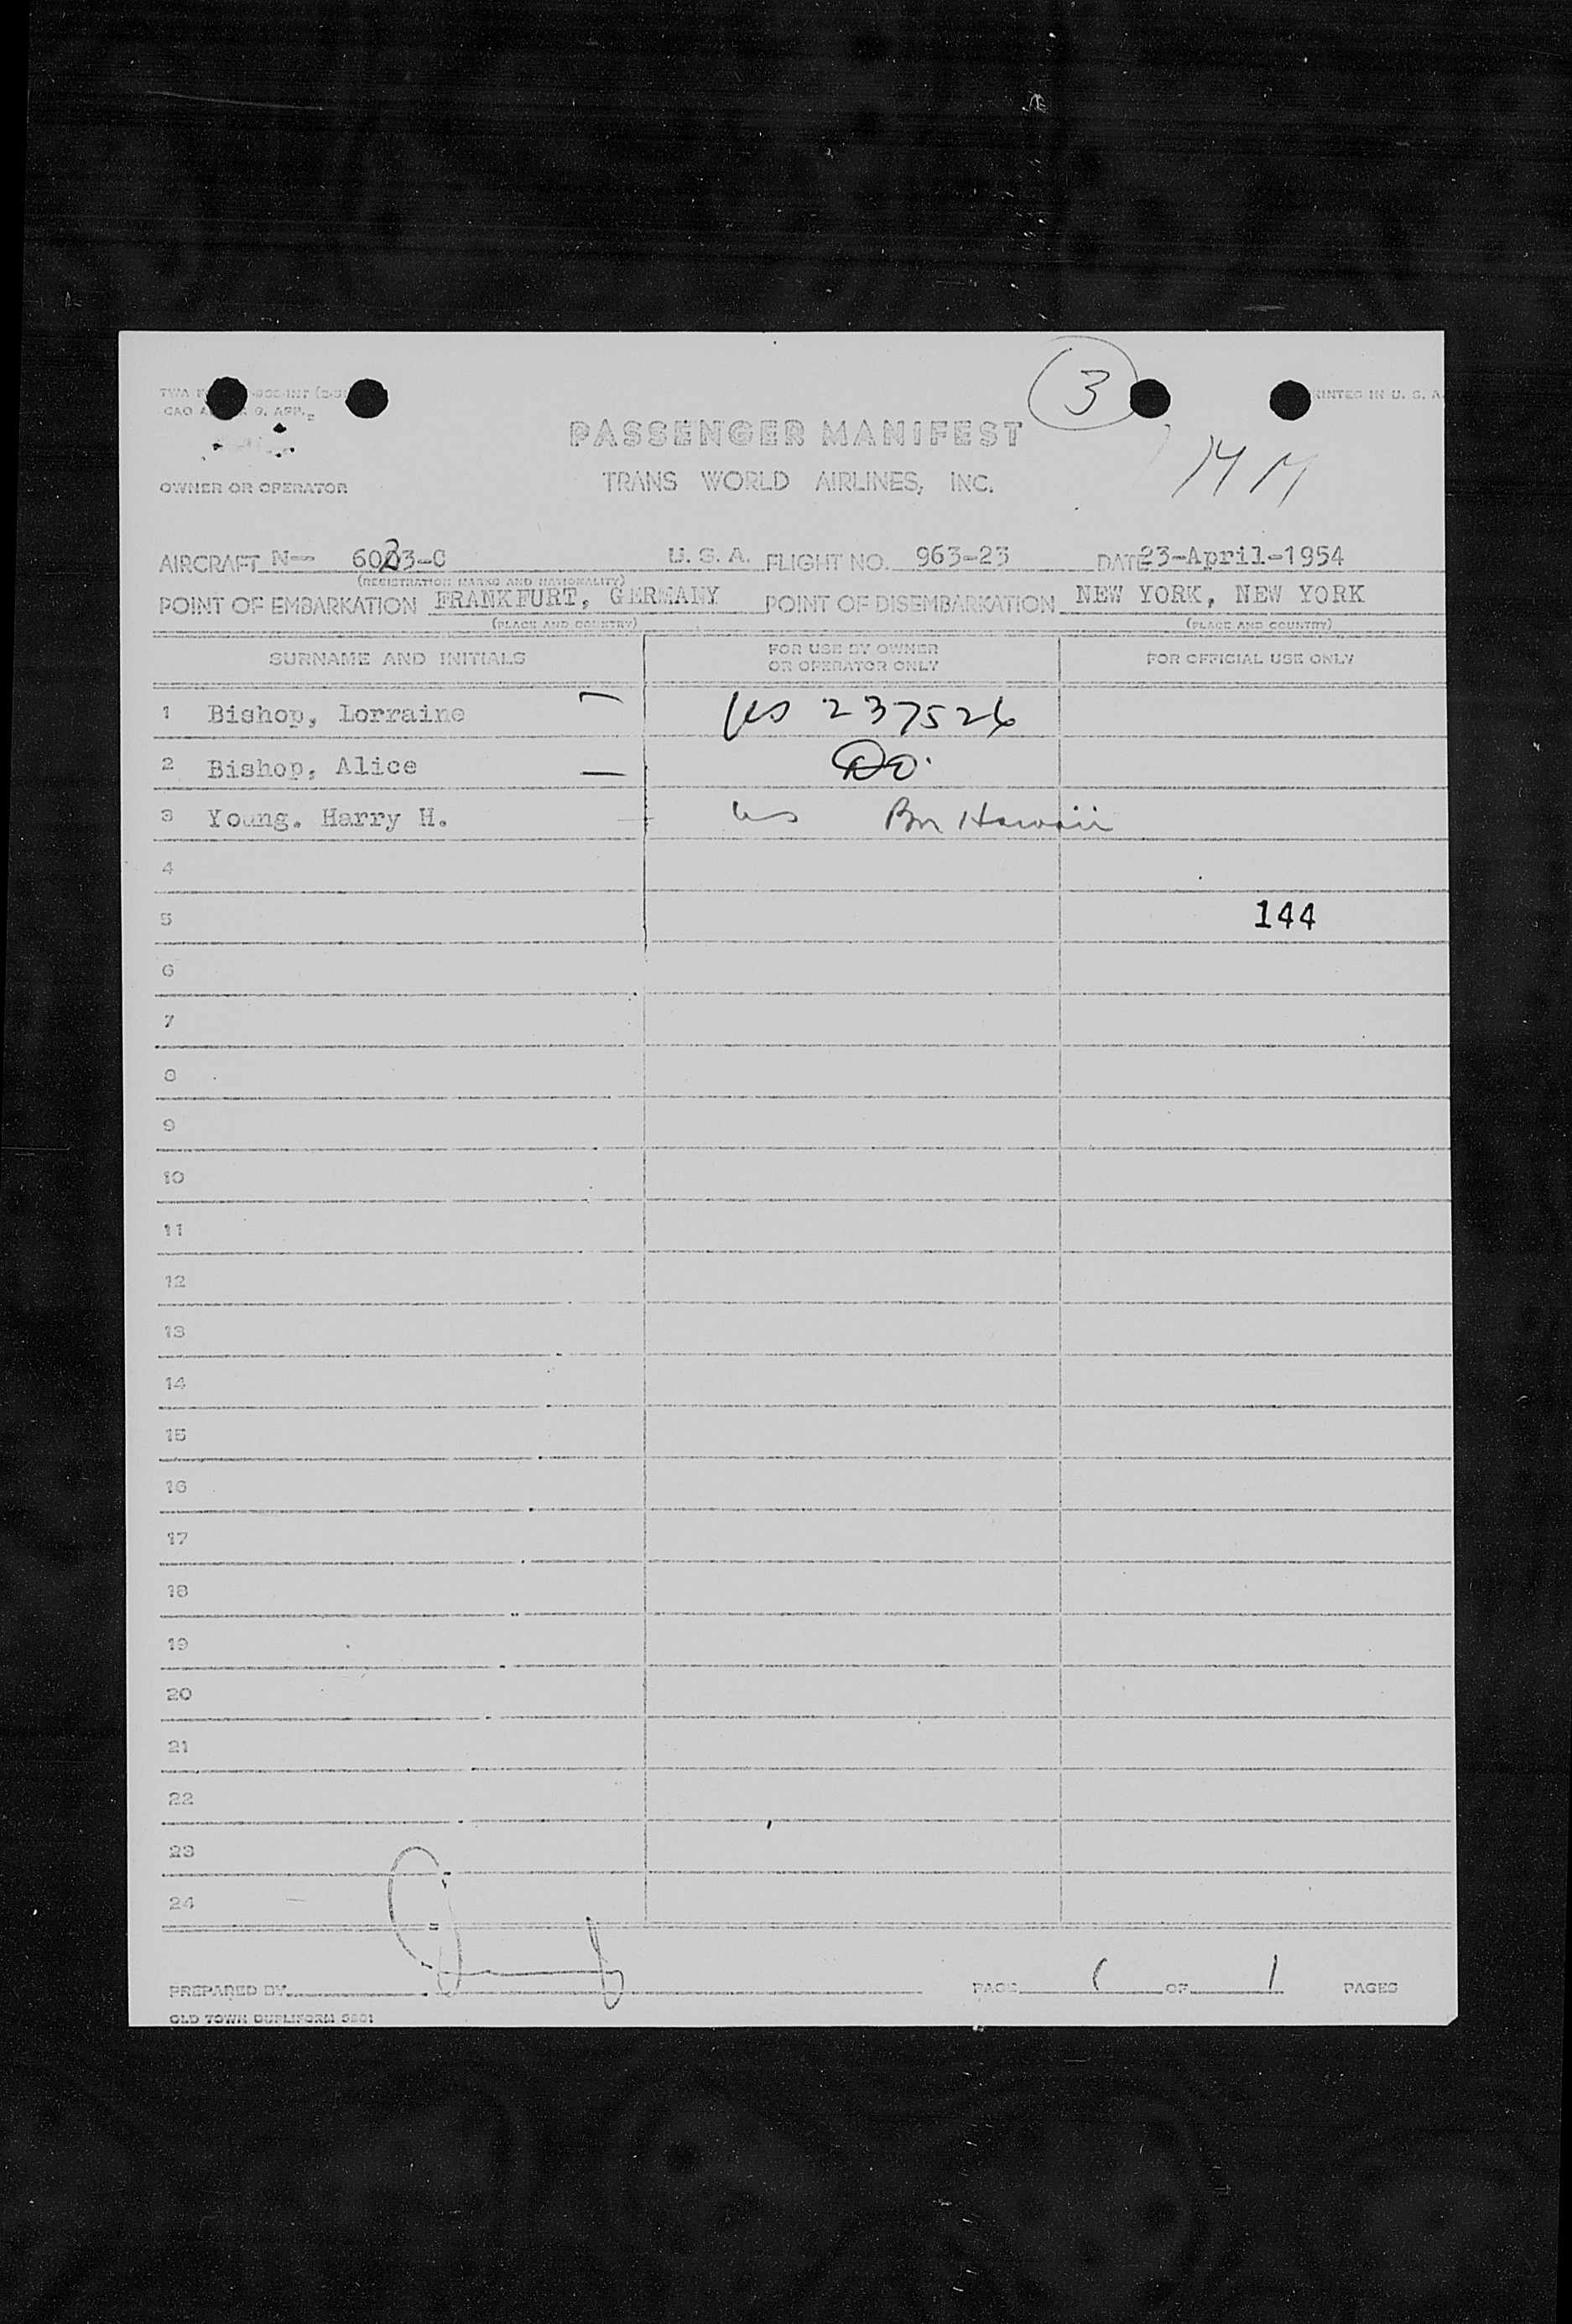 3
PRINTED IN U. S. A.
PASSENGER MANIFEST
MM
TRANS WORLD AIRLINES, INC.
OWNER OR OPERATOR
AIRCRAFT N-- 6023-C U. S. A. FLIGHT NO. 963-23 DATE 23-April-1954
(REGISTRATION MARKS AND NATIONALITY)
POINT OF EMBARKATION FRANKFURT, GERMANY POINT OF DISEMBARKATION NEW YORK, NEW YORK
(PLACE AND COUNTRY) (PLACE AND COUNTRY)
SURNAME AND INITIALS FOR USE BY OWNER OR OPERATOR ONLY FOR OFFICIAL USE ONLY
1 Bishop, Lorraine US 237526
2 Bishop, Alice DO.
3 Young. Harry H. US Bn Hawaii
4
5 144
6
7
8
9
10
11
12
13
14
15
16
17
18
19
20
21
22
23
24
PREPARED BY PAGE 1 OF 1 PAGES
OLD TOWN DUPLIFORM